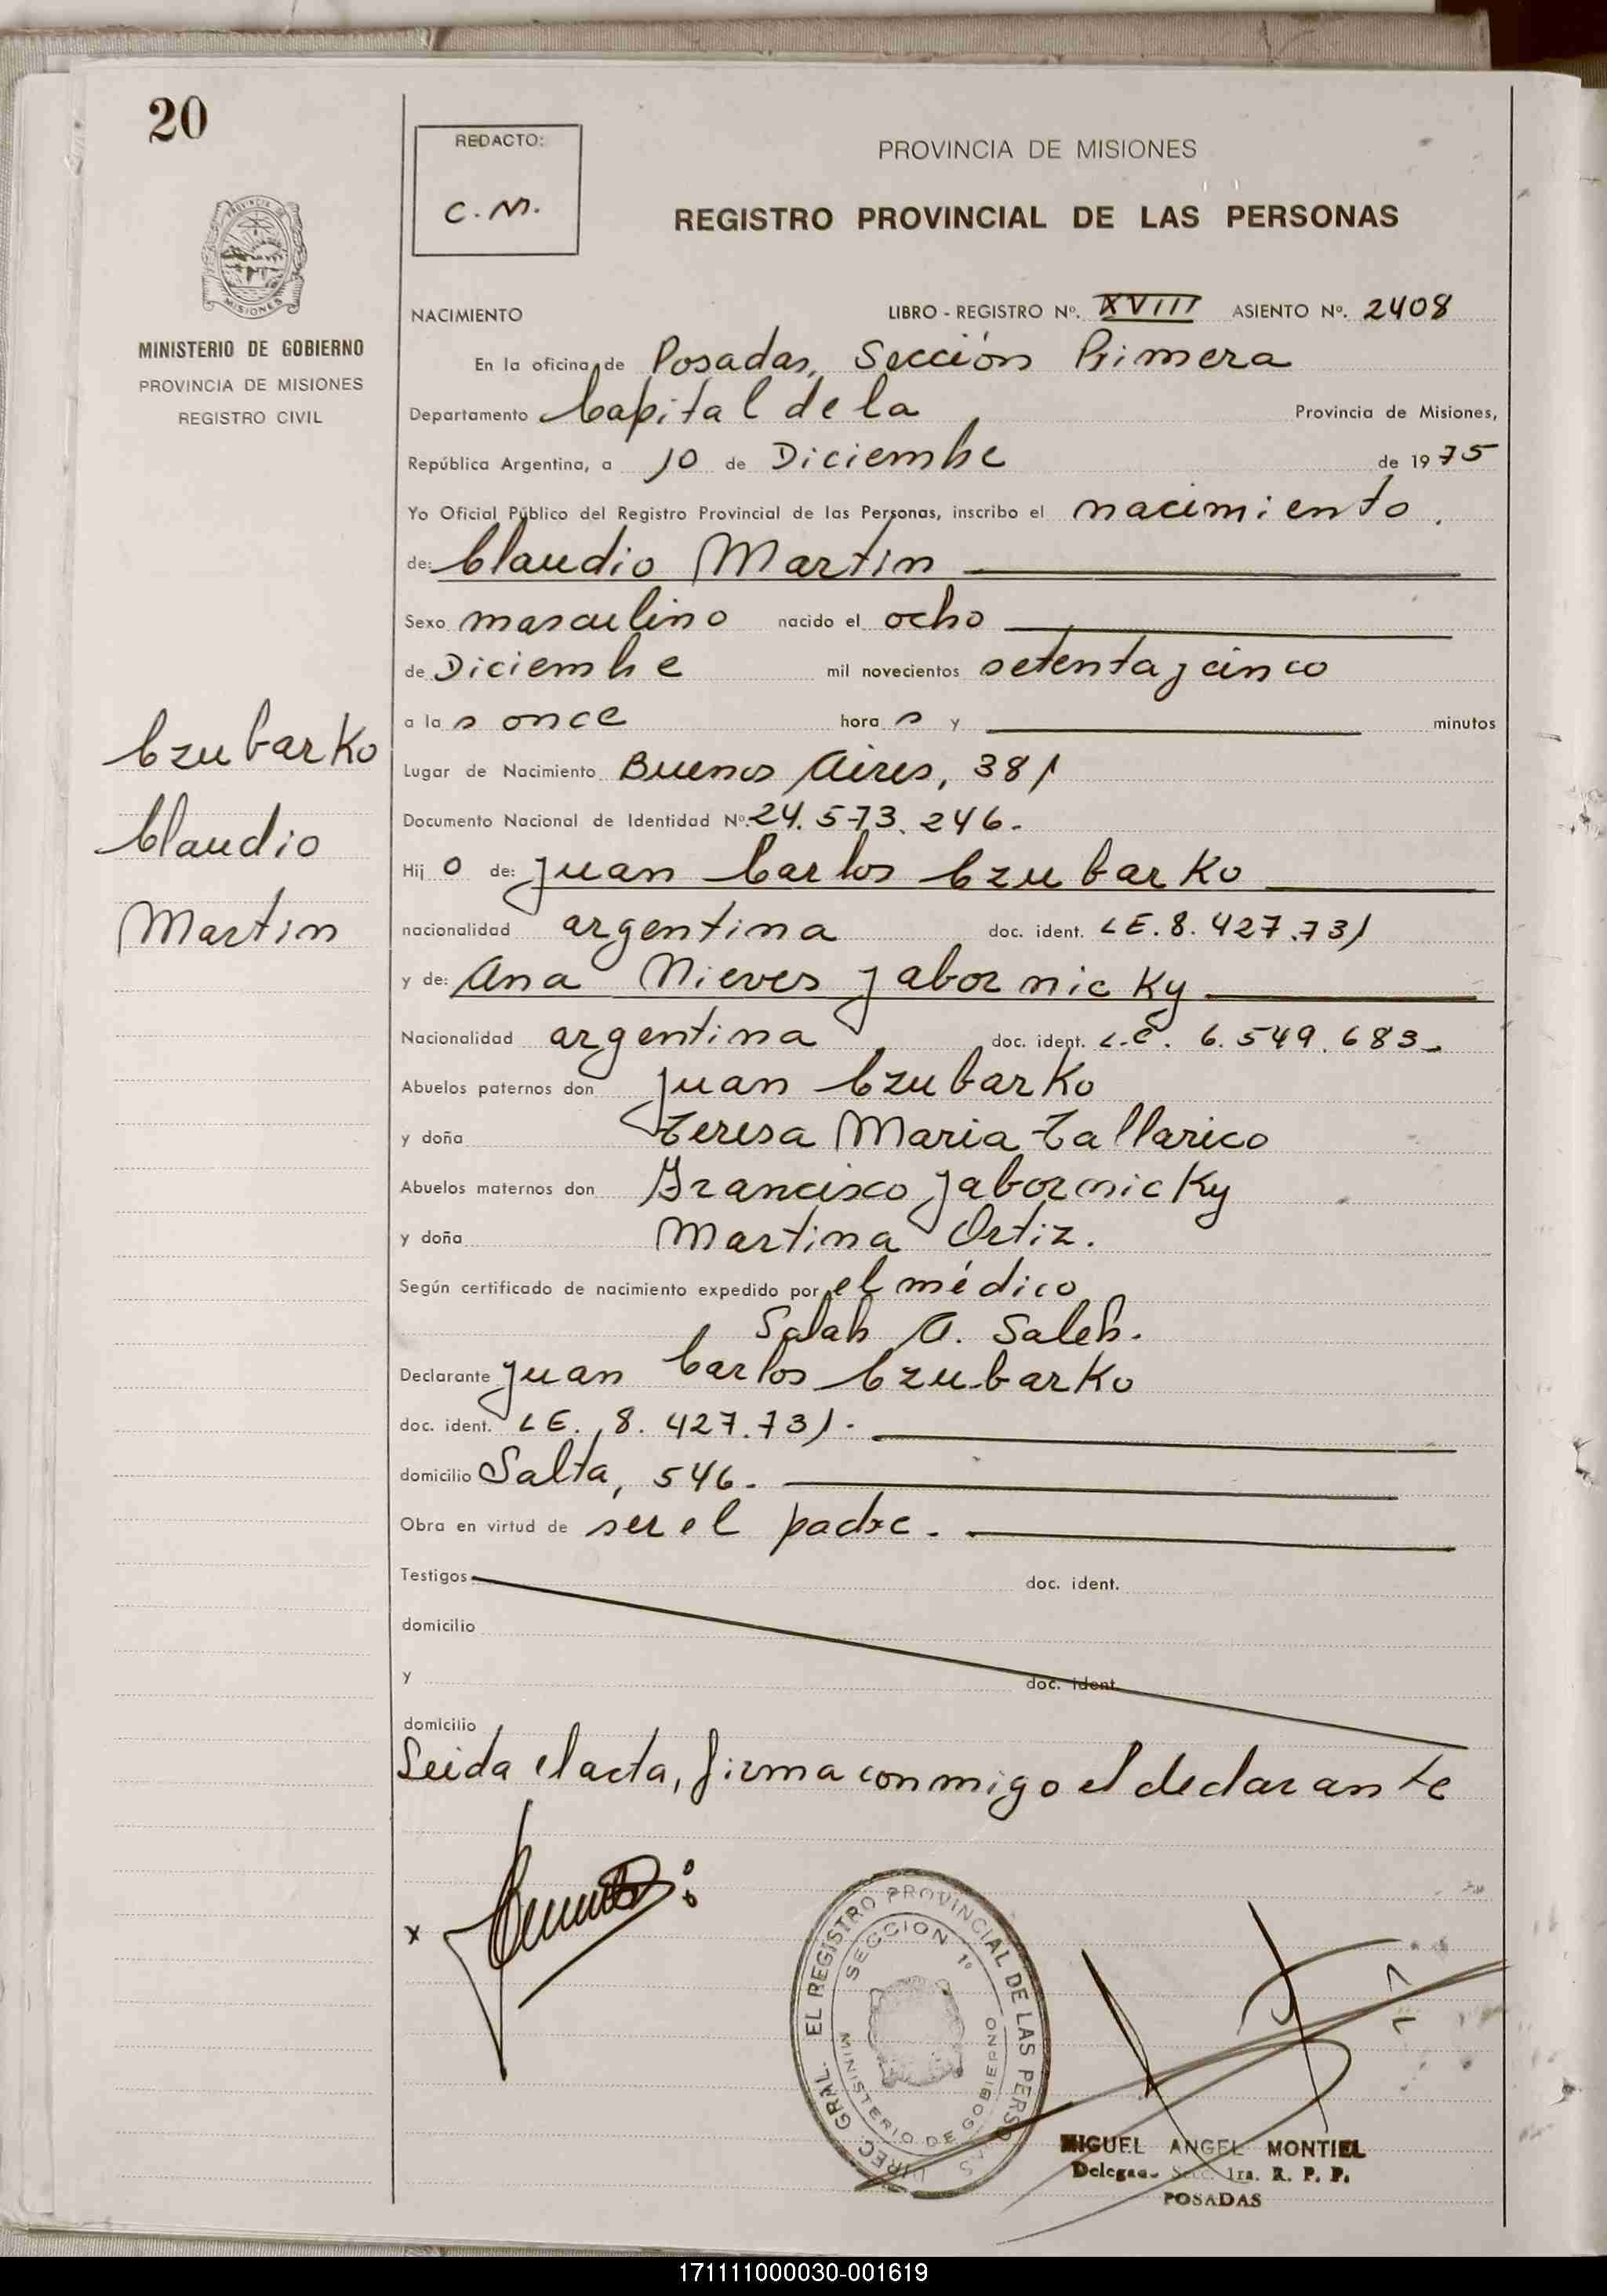 20
REDACTO:
C. M.
PROVINCIA DE MISIONES
REGISTRO PROVINCIAL DE LAS PERSONAS
PROVINCIA DE
MISIONES
MINISTERIO DE GOBIERNO
PROVINCIA DE MISIONES
REGISTRO CIVIL
NACIMIENTO LIBRO - REGISTRO Nº. XVIII ASIENTO Nº. 2408
En la oficina de Posadas, Sección Primera
Departamento Capital de la Provincia de Misiones,
República Argentina, a 10 de Diciembre de 1975
Yo Oficial Público del Registro Provincial de las Personas, inscribo el nacimiento.
de: Claudio Martin
Sexo masculino nacido el ocho
de Diciembre mil novecientos setenta y cinco
a las once horas y minutos
Czubarko
Claudio
Martin
Lugar de Nacimiento Buenos Aires, 381
Documento Nacional de Identidad Nº. 24.573.246.
Hijo de: Juan Carlos Czubarko
nacionalidad argentina doc. ident. LE. 8.427.731
y de: Ana Nieves Jabornicky
Nacionalidad argentina doc. ident. L.C. 6.549.683.
Abuelos paternos don Juan Czubarko
y doña Teresa Maria Tallarico
Abuelos maternos don Francisco Jabornicky
y doña Martina Ortiz.
Según certificado de nacimiento expedido por el médico
Salah A. Saleh.
Declarante Juan Carlos Czubarko
doc. ident. LE. 8.427.731.
domicilio Salta, 546.
Obra en virtud de ser el padre.
Testigos doc. ident.
domicilio
y doc. ident.
domicilio
Leida el acta, firma conmigo el declarante
x
DIREC. GRAL. EL REGISTRO PROVINCIAL DE LAS PERSONAS
SECCION 1º
MINISTERIO DE GOBIERNO
MIGUEL ANGEL MONTIEL
Delegado Secc. 1ra. R. P. P.
POSADAS
171111000030-001619